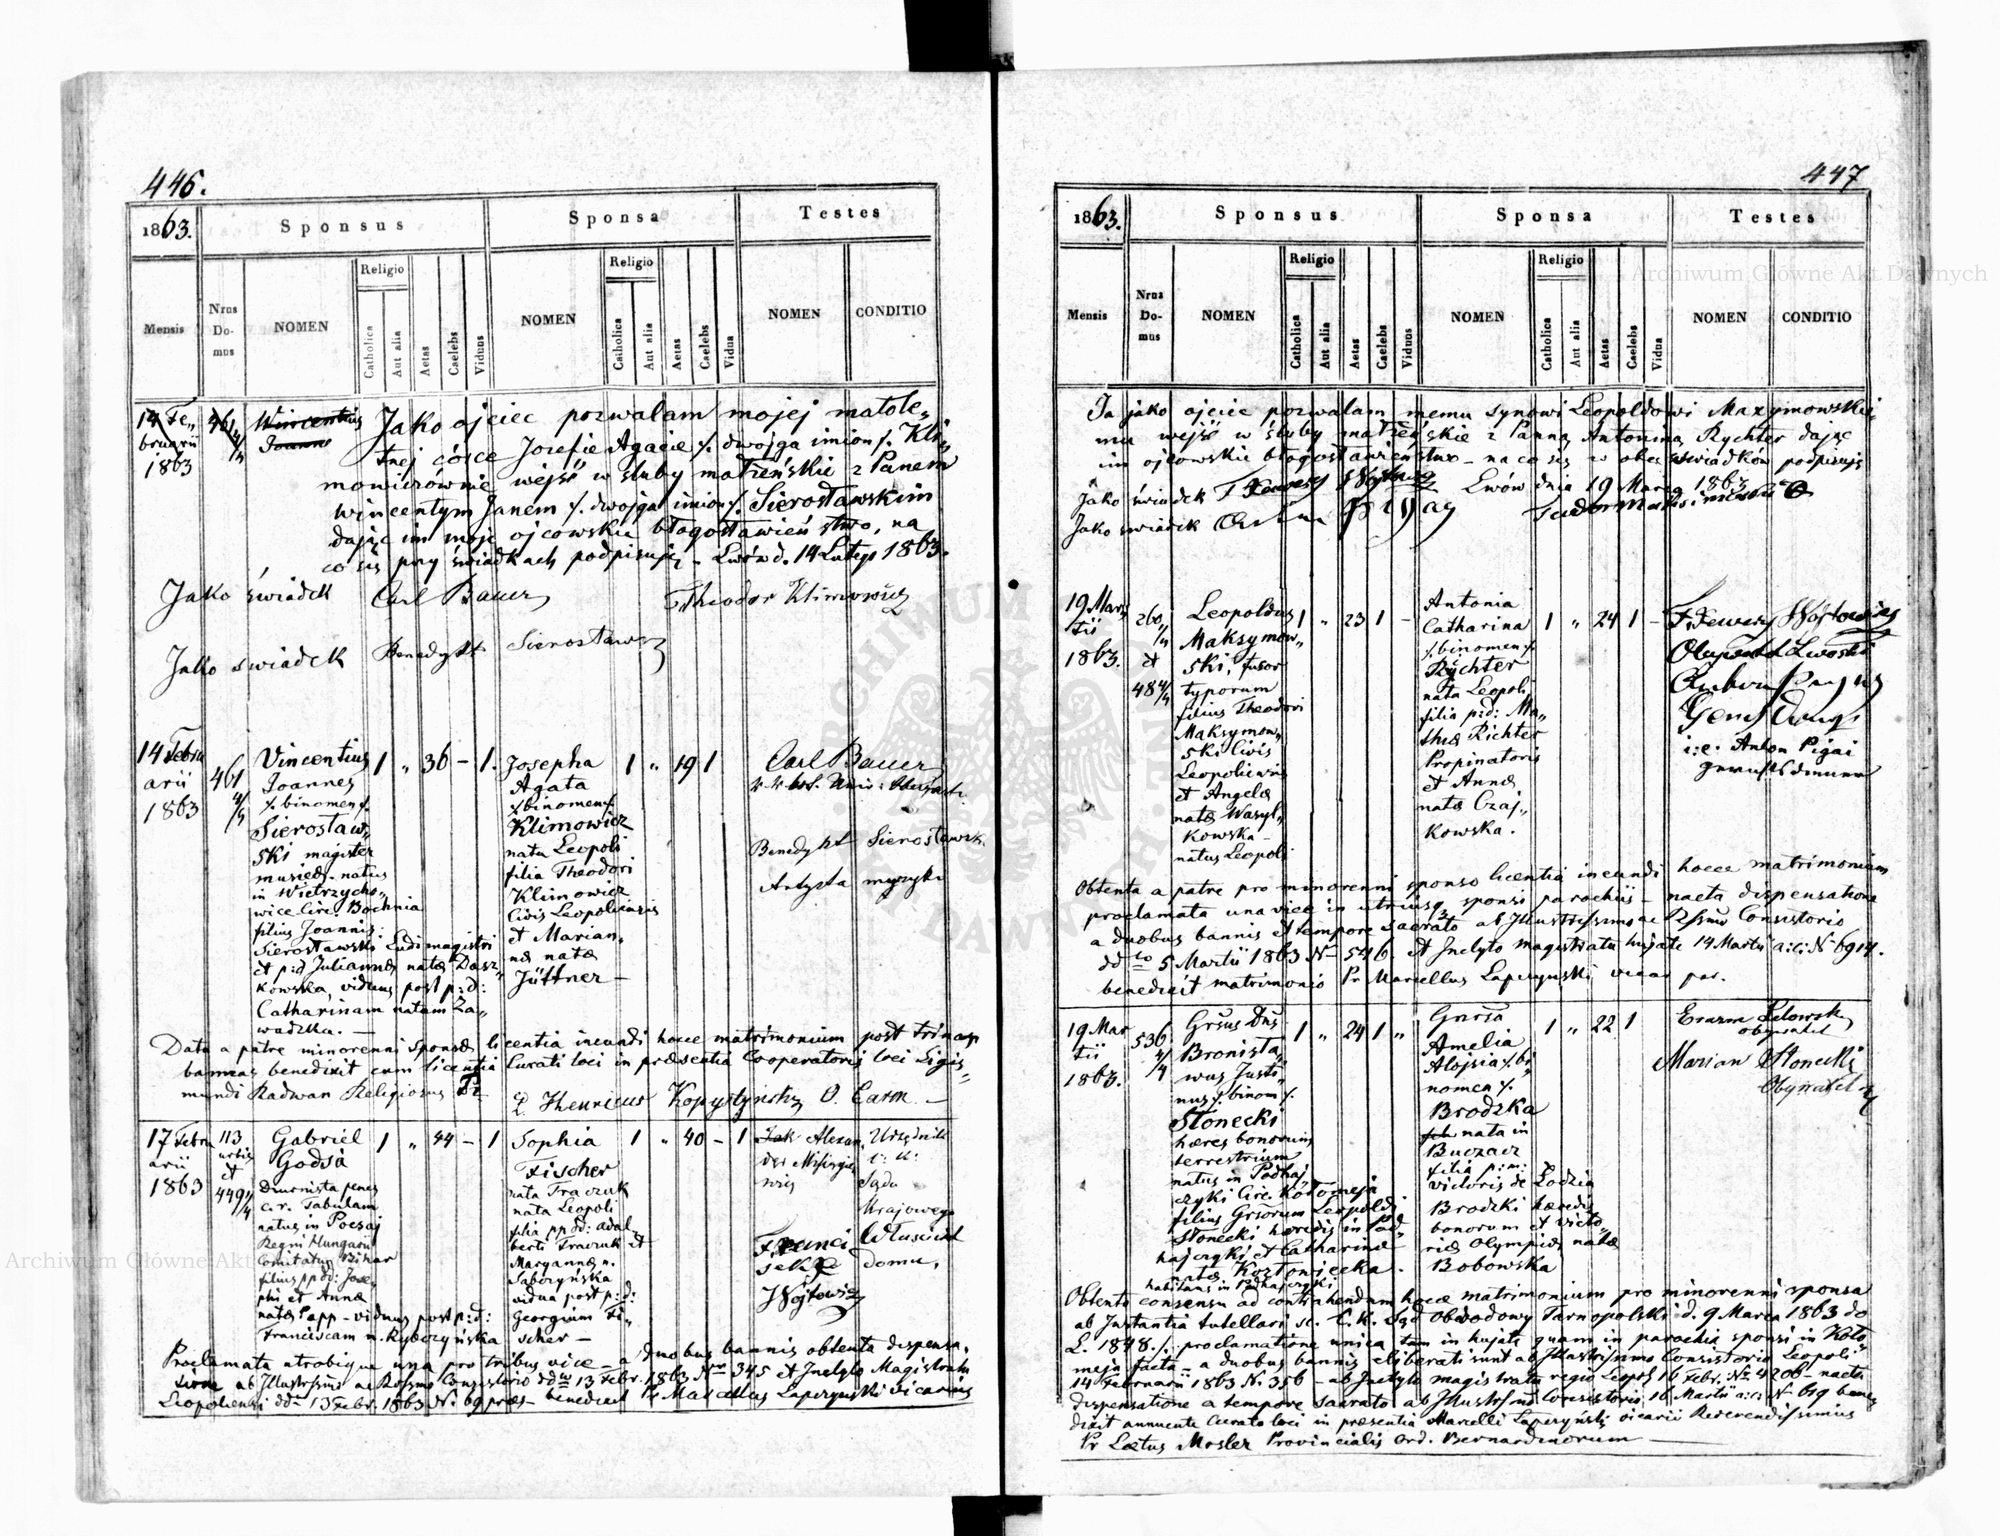 446.
1863.
Sponsus
Sponsa
Testes
Mensis
Nrus Domus
NOMEN
Religio
Catholica
Aut alia
Aetas
Caelebs
Viduus
NOMEN
Religio
Catholica
Aut alia
Aetas
Caelebs
Vidua
NOMEN
CONDITIO
14 Fe„
bruarii
1863
461
4/4
Wincentius
Joannes
Jako ojciec pozwalam mojej małole„
tnej córce Josefie Agacie /. dwojga imion /. Kli„
mowiczównie wejść w śluby małżeńskie z Panem
Wincentym Janem /. dwojga imion /. Sierosławskim
dając im moje ojcowskie błogosławieństwo, na
co się przy świadkach podpisuję – Lwów d. 14 Lutego 1863.
Jako świadek Carl Bauer Theodor Klimowicz
Jako świadek Benedykt Sierosławs
14 Febru
arii
1863
461
4/4
Vincentius
Joannes
/. binomen /.
Sierosław„
ski magister
musicæ natus
in Wietrzycho„
wice Circ. Bochnia
filius Joannis
Sierosławski Ludimagistri
et p:d Juliannæ natæ Dasz„
kowska, viduus post p:d:
Catharinam natam Za„
wadzka. —
1 „ 36 – 1.
Josepha
Agata
/. binomen /.
Klimowicz
nata Leopoli
filia Theodori
Klimowicz
Civis Leopoliensis
et Marian„
næ natæ
Jüttner —
1 „ 19 1
Carl Bauer
Benedykt Sierosławsk
Artysta muzyki
Data a patre minorenni sponsæ licentia ineundi hocce matrimonium post trinas
bannas benedixit cum licentia Curati loci in præsentia Cooperatoris loci Sigis„
mundi Radwan Religiosus P. Henricus Kopystyński O. Carm. —
17 Febru
arii
1863
113
urbis
et
449 4/4
Gabriel
Godsa
Diurnista penes
c. r. Tabulam
natus in Pocsaj
Regni Hungariæ
Comitatus Bihar
filius pp:dd: Jose„
phi et Annæ
natæ Papp – viduus post p:d:
Franciscam n. Rybczyńska
1 „ 44 – 1
Sophia
Fischer
nata Traczuk
nata Leopoli
filia pp:dd: Adal„
berti Traczuk et
Mariannæ n.
Saborzyńska
vidua post p:d:
Georgium Fi„
scher —
1 „ 40 – 1
Alexan„
der
Urzędnik
c: k:
Sądu
Krajowego
Franci
szek
Wójtowicz
Właściciel
domu.
Proclamata utrobique una pro tribus vice – a duobus bannis obtenta dispensa„
tione ab Illustrissimo ac Rdssmo Consistorio ddto 13 Febr. 1863 Nro 345 et Inclyto Magistratu
Leopoliensi ddto 13 Febr. 1863 N. 69 præs – benedixit Pr Marcellus Łapczyński Vicarius
447
1863.
Sponsus
Sponsa
Testes
Mensis
Nrus Domus
NOMEN
Religio
Catholica
Aut alia
Aetas
Caelebs
Viduus
NOMEN
Religio
Catholica
Aut alia
Aetas
Caelebs
Vidua
NOMEN
CONDITIO
Ja jako ojciec pozwalam memu synowi Leopoldowi Maxymowskie„
mu wejść w śluby małżeńskie z Panną Antoniną Rychter dając
im ojcowskie błogosławieństwo – na co się w obec świadków podpisuję
Jako świadek F Xawery Wojtowicz Lwów dnia 19 Marca 1863
Jako świadek
19 Mar
tii
1863.
260
4/4
et
48 4/4
Leopoldus
Maksymow„
ski, fusor
typorum
filius Theodori
Maksymow„
ski Civis
Leopoliensis
et Angelæ
natæ Wasyl„
kowska –
natus Leopoli
1 „ 23 1 –
Antonia
Catharina
/. binomen /.
Rychter
nata Leopoli
filia p:d: Ma„
thiæ Richter
Propinatoris
et Annæ
natæ Czaj„
kowska.
1 „ 24 1 –
F. Xawery Wojtowicz
i: e: Anton Pigai
Obtenta a patre pro minorenni sponso licentia ineundi hocce matrimonium
proclamata una vice in utriusq sponsi parochiis – nacta dispensatione
a duobus bannis et tempore sacrato ab Illustrissimo ac Rssmo Consistorio
ddto 5 Martii 1863 N 546. et Inclyto magistratu hujate 14 Martii a:c: N 6914.
benedixit matrimonio Pr Marcellus Łapczyński vicar par.
19 Mar
tii
1863.
536
4/4
Grsus Dns
Bronisła„
wus Justi„
nus /. binom /.
Słonecki
hæres bonorum
terrestrium
natus in Podhaj„
czyki Circ. Kołomeja
filius Grsorum Leopoldi
Słonecki hæredis in Pod„
hajczyki et Catharinæ
natæ Kozłowiecka.
habitans in Podhajczyki
1 „ 24 1 „
Grssa
Amelia
Alojsia /. bi„
nomen /.
Brodzka
nata in
Buczacz
filia p: m:
Victoris de Łodzia
Brodzki hæredis
bonorum et Victo„
riæ Olympiæ natæ
Bobowska
1 „ 22 1
Erazm
obywatel
Maryan Słonecki
Obywatel
Obtento consensu ad contrahendum hocce matrimonium pro minorenni sponsa
ab Instantia tutellari sc. C. K. Sąd Obwodowy Tarnopolski d. 9 Marca 1863 do
L. 1848. /. proclamatione unica tam in hujate quam in parochia sponsi in Koło„
meja facta – a duobus bannis eliberati sunt ab Illustrissimo Consistorio Leopoli
14 Februarii 1863 N. 356 – ab Inclyto magistratu regio Leopol 16 Febr. No 4206 – nacta
dispensatione a tempore sacrato ab Illustrsmo Consistorio 16 Martii a:c: N 619 bene„
dixit annuente Curato loci in præsentia Marcelli Łapczyński vicarii Reverendissimus
Pr Lætus Mosler Provincialis Ord. Bernardinorum —
Archiwum Główne Akt Dawnych
Archiwum Główne Akt
ARCHIWUM GŁÓWNE AKT DAWNYCH